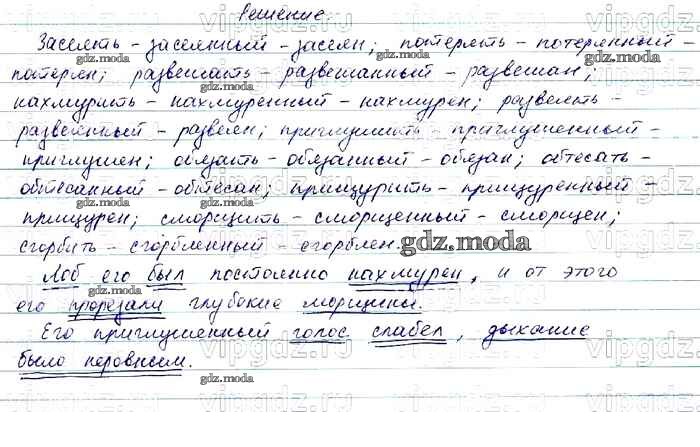 Решение.
Засеять – засеянный – засеян; потерять – потерянный –
потерян; развешать – развешанный – развешан;
нахмурить – нахмуренный – нахмурен; развеять –
развеянный – развеян; приглушить – приглушенный –
приглушен; обязать – обязанный – обязан; обтесать –
обтесанный – обтесан; прищурить – прищуренный –
прищурен; сморщить – сморщенный – сморщен;
сгорбить – сгорбленный – сгорблен.
Лоб его был постоянно нахмурен, и от этого
его прорезали глубокие морщины.
Его приглушенный голос слабел, дыхание
было неровным.
gdz.moda
vipgdz.ru